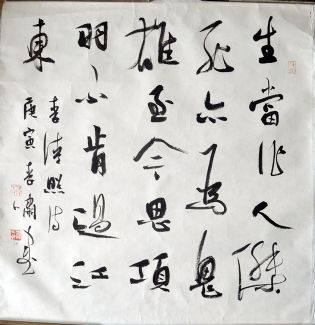 生當作人傑
死亦為鬼
雄至今思項
羽不肯過江
東
李清照詩
庚寅李